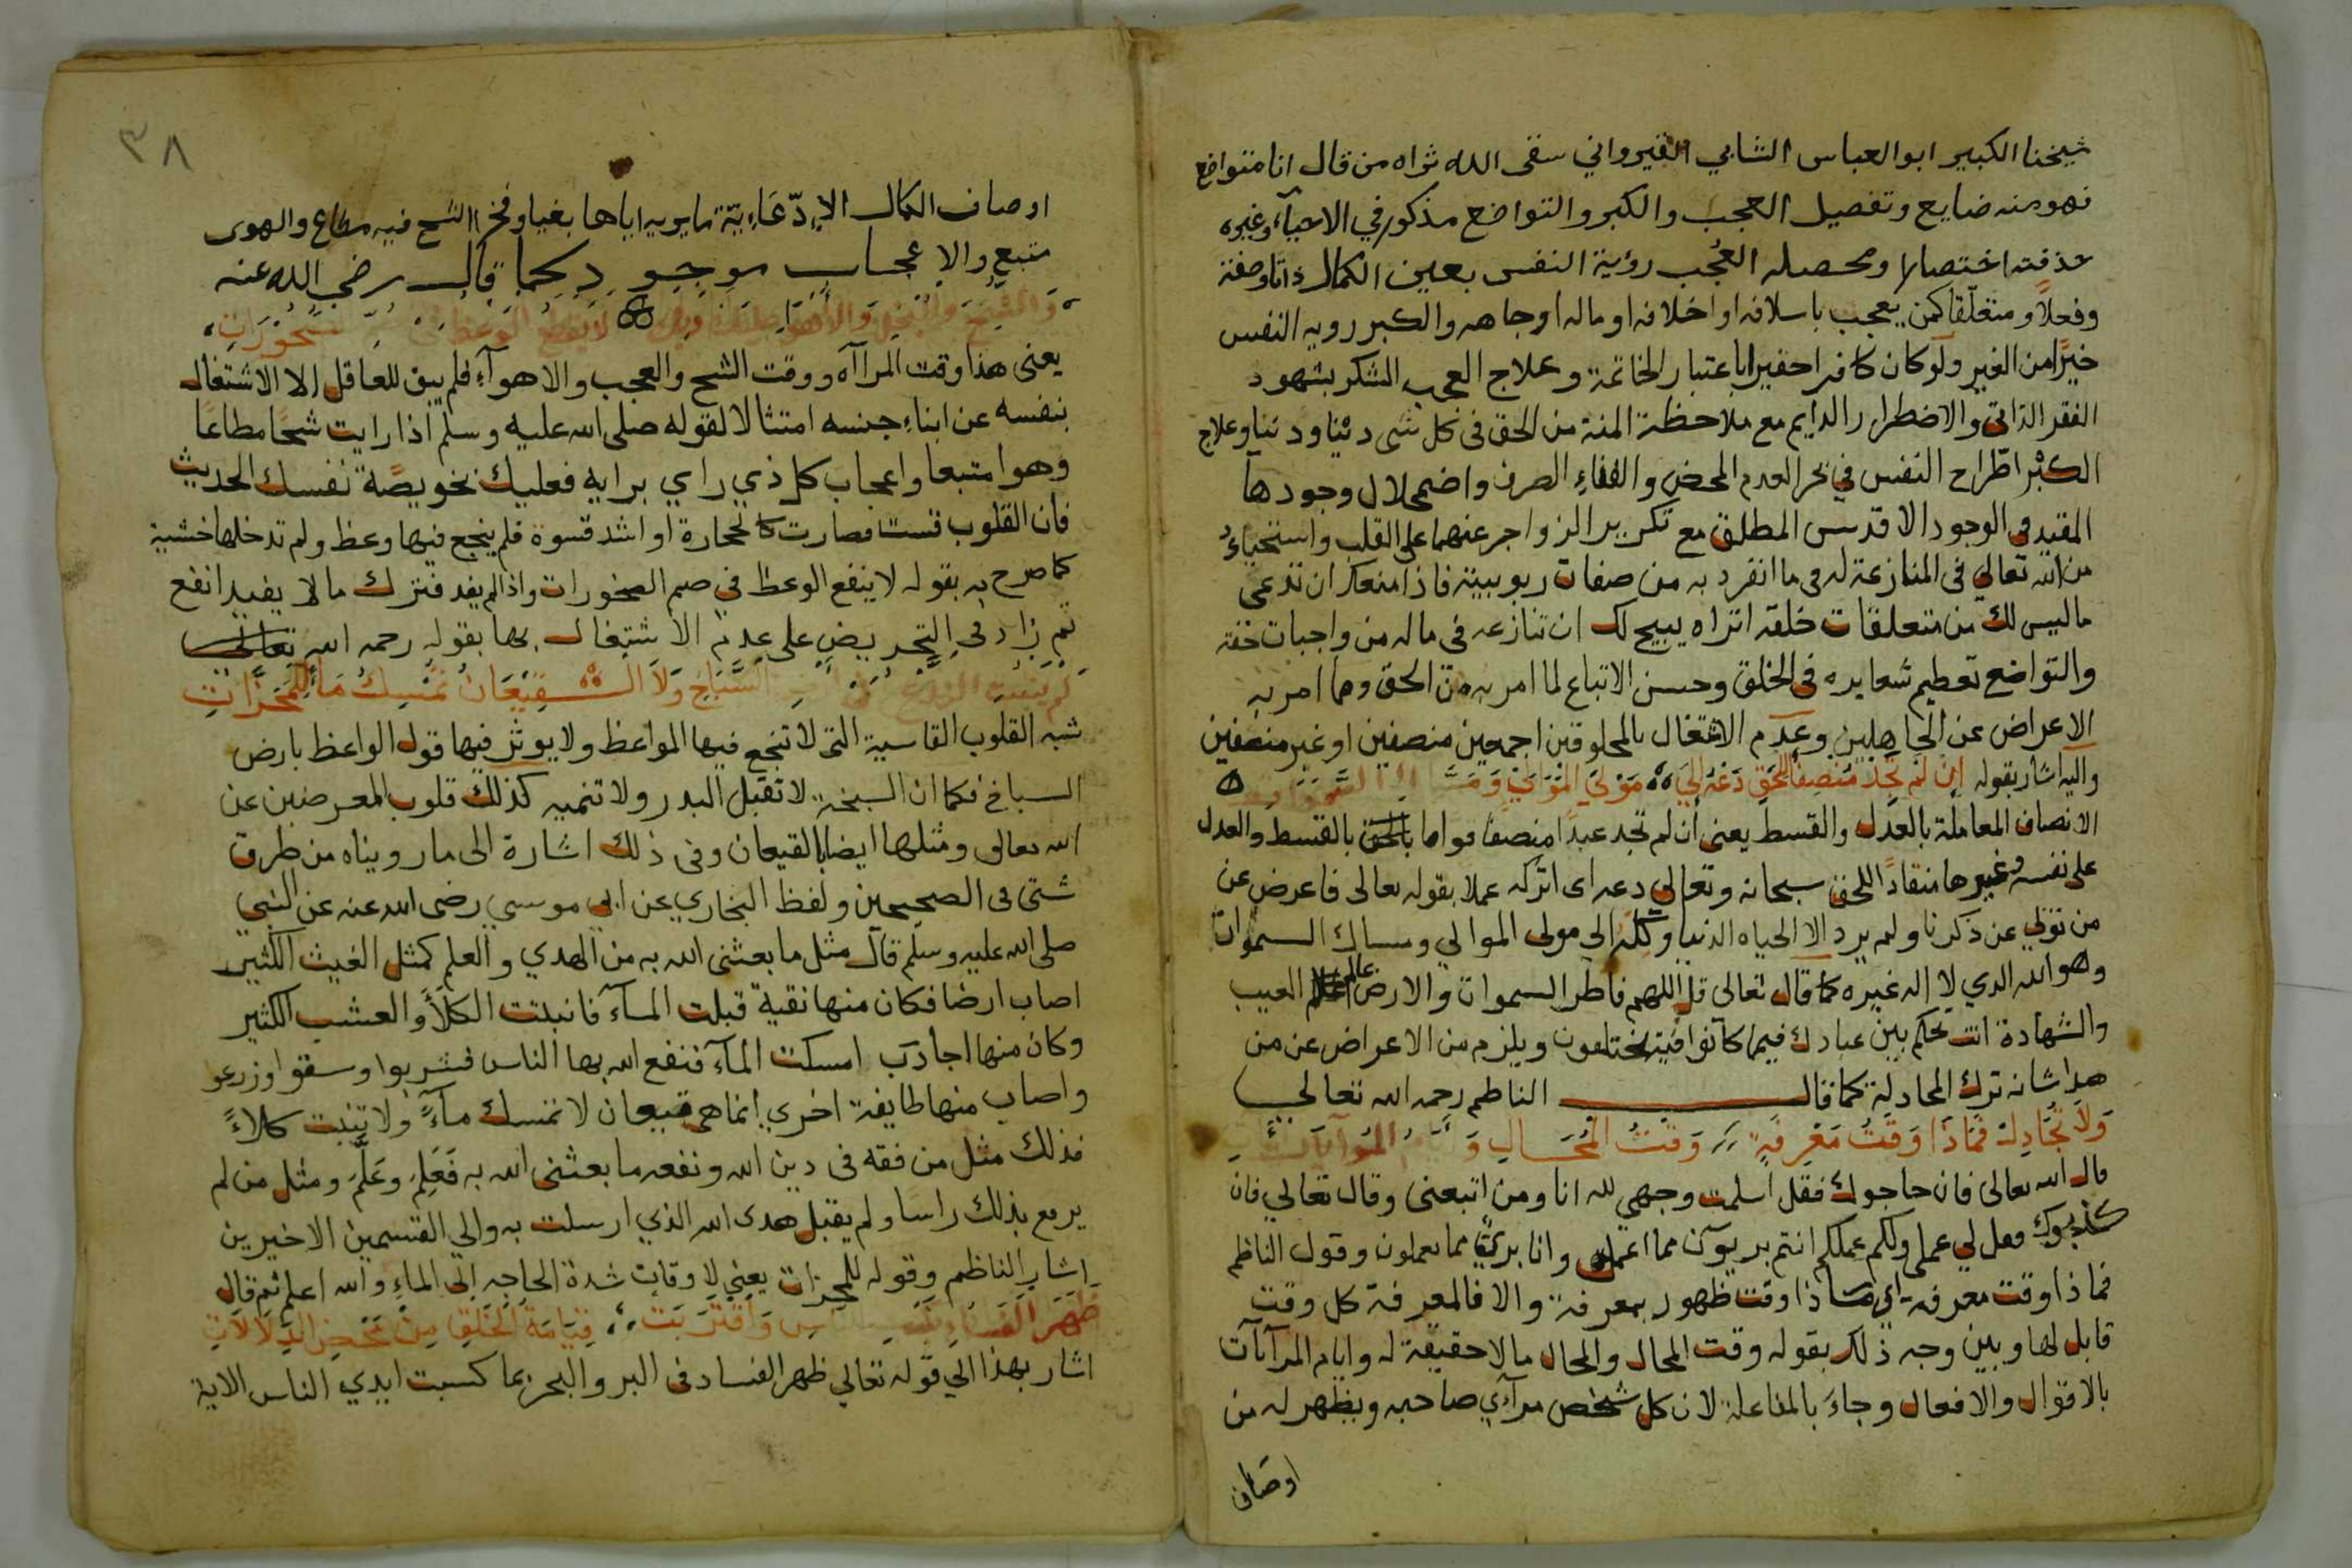 شيخنا الكبير ابو العباس الشابي القيرواني سقى الله ثراه من قال انا متواضع
فهو منه ضايع وتفصيل العجب والكبر والتواضع مذكور في الاحيآء وغيره
حذفته اختصارا ومحصله العُجب رؤية النفس بعين الكمال ذاتا وصفة
وفعلاً ومتعلّقا كمن يعجب باسلافه او اخلاقه او ماله او جاهه والكبر رويه النفس
خيرًا من الغير ولو كان كافرا حقيرا باعتبار الخاتمة وعلاج العجب الشكر بشهود
الفقر الذاتى والاضطرار الدايم مع ملاحظة المنة من الحق فى كل شى دينا ودنيا وعلاج
الكبر اطّراح النفس في بحر العدم المحض والفناءِ الصرف واضمحلال وجودها
المقيد فى الوجود الاقدس المطلق مع تكرير الزواجر عنهما على القلب واستحياءً
من الله تعالى فى المنازعة له فى ما انفرد به من صفات ربوبيته فاذا منعك ان تدعى
ما ليس لك من متعلقات خلقه اتراه يبيح لك ان تنازعه فى ماله من واجبات حقه
والتواضع تعظيم شعايره فى الخلق وحسن الاتباع لما امر به من الحق ومما امر به
الاعراض عن الجاهلين وعدم الاشتغال بالمخلوقين اجمعين منصفين او غير منصفين
واليه اشار بقوله اِنْ لَم تَجِدْ مُنصِفاً للحَق دَعْهُ اِلَى مَوْلَى الْمَوَالِيْ وَ
الانصاف المعاملة بالعدل والقسط يعنى ان لم تجد عبدا منصفا قواما بالحق بالقسط والعدل
على نفسه وغيرها منقادًا للحق سبحانه وتعالى دعه اى اتركه عملا بقوله تعالى فاعرض عن
من تولي عن ذكرنا ولم يرد الا الحياه الدنيا وكله الى مولى الموالي ومساك السموات
وهو الله الذي لا اله غيره كما قال تعالى قل اللهم فاطر السموات والارض عالم الغيب
والشهادة انت تحكم بين عبادك فيما كانوا فيه يختلفون ويلزم من الاعراض عن من
هذا شانه ترك المجادلة كما قال الناظم رحمه الله تعالى
وَلاَ تُجَادِلْهُ فَمَاذَا وَقْتُ مَعْرِفَةٍ وَقْتُ الْمُحَـالِ وَ
قال الله تعالى فان حاجوك فقل اسلمت وجهي لله انا ومن اتبعنى وقال تعالي فان
كذبوك فقل لي عملى ولكم عملكم انتم بريئون مما اعمل وانا برئ مما تعملون وقول الناظم
فماذا وقت معرفة اي ما ذا وقت ظهور بمعرفة والا فالمعرفة كل وقت
قابل لها وبين وجه ذلك بقوله وقت المحال والمحال ما لا حقيقة له وايام المرآآت
بالاقوال والافعال وجاءَ بالمفاعلة لان كل شخص مرآءي صاحبه ويظهر له من
اوصاف
٣٨
اوصاف الكمال الاِدّعَاءِيّة ما يريه اياها بغيا وفخرا الشح فيه مطاع والهوى
متبع والاعجاب موجود كما قال رضي الله عنه
وَالشُّحّ وَ لاَ يَنْفَع الْوَعظُ فِي
يعنى هذا وقت المرآآه ووقت الشح والعجب والاهوآءِ فلم يبق للعاقل الا الاشتغال
بنفسه عن ابناءِ جنسه امتثالا لقوله صلى الله عليه وسلم اذا رايت شحًا مطاعًا
وهوا متبعا واعجاب كل ذي راي برايه فعليك بخويصّة نفسك الحديث
فان القلوب قست فصارت كالحجارة او اشد قسوة فلم ينجع فيها وعظ ولم تدخلها خشية
كما صرح به بقوله لا ينفع الوعظ في صم الصخورات واذا لم يفد فترك ما لا يفيد انفع
ثم زاد فى التحريض على عدم الاشتغال بها بقوله رحمه الله تعالى
السّبَاخِ وَلاَ الـقِيْعَانُ تمْسِكُ مَا لِلْحَزَّاتِ
شبه القلوب القاسية التى لا تنجع فيها المواعظ ولا يوثر فيها قول الواعظ بارض
السباخ فكما ان السبخة لا تقبل البدر ولا تنميه كذلك قلوب المعرضين عن
الله تعالى ومثلها ايضا بالقيعان وفى ذلك اشارة الى ما رويناه من طرق
شتى فى الصحيحين ولفظ البخاري عن ابي موسى رضى الله عنه عن النبي
صلى الله عليه وسلم قال مثل ما بعثنى الله به من الهدي والعلم كمثل الغيث الكثير
اصاب ارضًا فكان منها نقية قبلت المآء فانبتت الكلأ والعشب الكثير
وكان منها اجادب امسكت المآء فنفع الله بها الناس فشربوا وسقوا وزرعو
واصاب منها طايفة اخري انما هى قيعان لا تمسك مآءً ولا تنبت كلاءً
فذلك مثل من فقه فى دين الله ونفعه ما بعثنى الله به فَعَلِمَ وعَلَّمَ ومثل من لم
يرفع بذلك راسا ولم يقبل هدى الله الذي ارسلت به والي القسمين الاخيرين
اشار الناظم وقوله للحزات يعني لاوقات شدة الحاجه الى الماءِ والله اعلم ثم قال
ظَهَرَ الْفَسَادُ وَاقْتَرَبَت قِيَامَةُ الْخَلْقِ مِنْ مَحْضِ الدَّلاَلاَتِ
اشار بهذا الي قوله تعالي ظهر الفساد فى البر والبحر بما كسبت ايدي الناس الاية